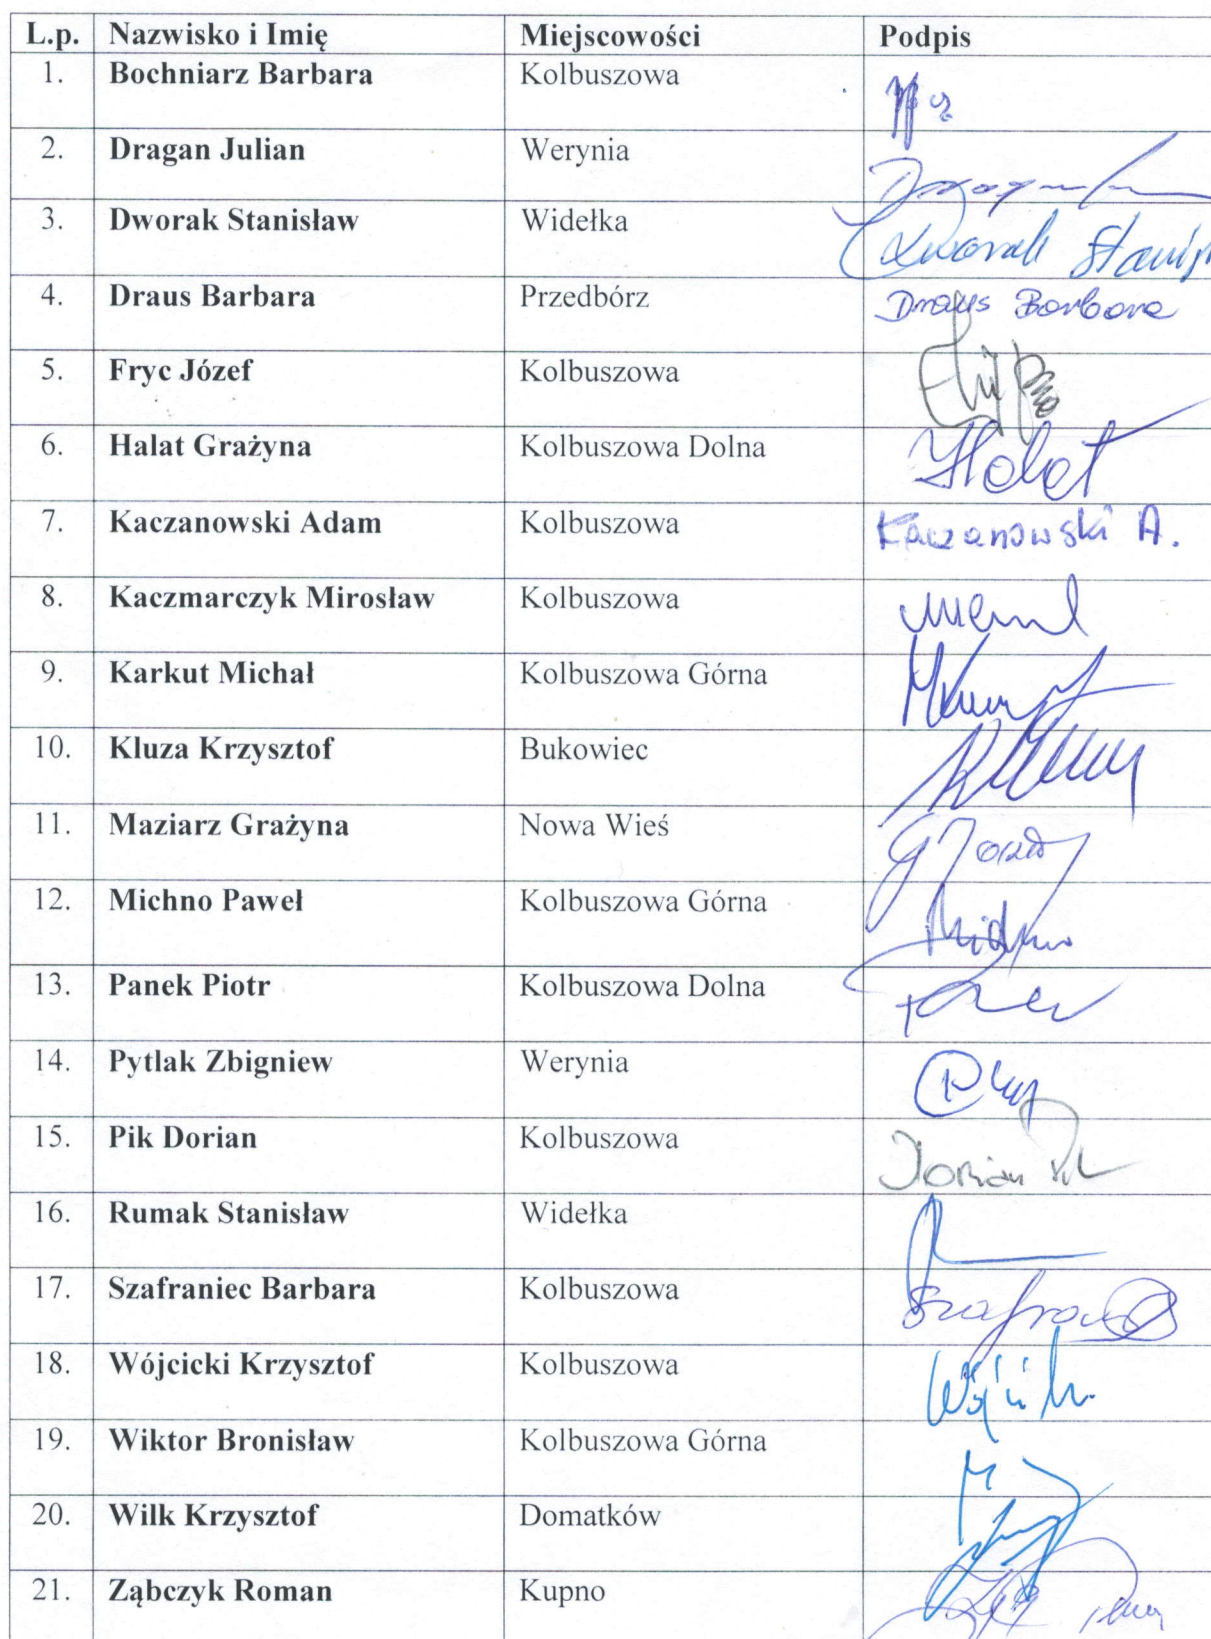 L.p. Nazwisko i Imię Miejscowości Podpis
1. Bochniarz Barbara Kolbuszowa
2. Dragan Julian Werynia
3. Dworak Stanisław Widełka Dworak
4. Draus Barbara Przedbórz Draus Barbara
5. Fryc Józef Kolbuszowa
6. Halat Grażyna Kolbuszowa Dolna Halat
7. Kaczanowski Adam Kolbuszowa Kaczanowski A.
8. Kaczmarczyk Mirosław Kolbuszowa
9. Karkut Michał Kolbuszowa Górna
10. Kluza Krzysztof Bukowiec
11. Maziarz Grażyna Nowa Wieś
12. Michno Paweł Kolbuszowa Górna Michno
13. Panek Piotr Kolbuszowa Dolna
14. Pytlak Zbigniew Werynia
15. Pik Dorian Kolbuszowa Dorian Pik
16. Rumak Stanisław Widełka
17. Szafraniec Barbara Kolbuszowa
18. Wójcicki Krzysztof Kolbuszowa
19. Wiktor Bronisław Kolbuszowa Górna
20. Wilk Krzysztof Domatków
21. Ząbczyk Roman Kupno